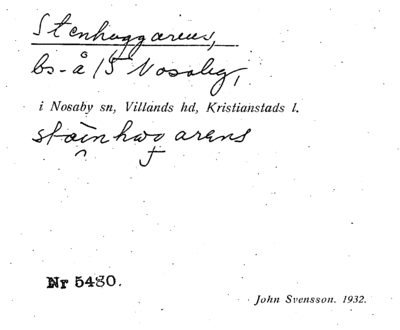 Stenhuggarens,
bs-å /5 Nosaby,
i Nosaby sn, Villands hd, Kristianstads l.
arens
Nr 5480.
John Svensson. 1932.